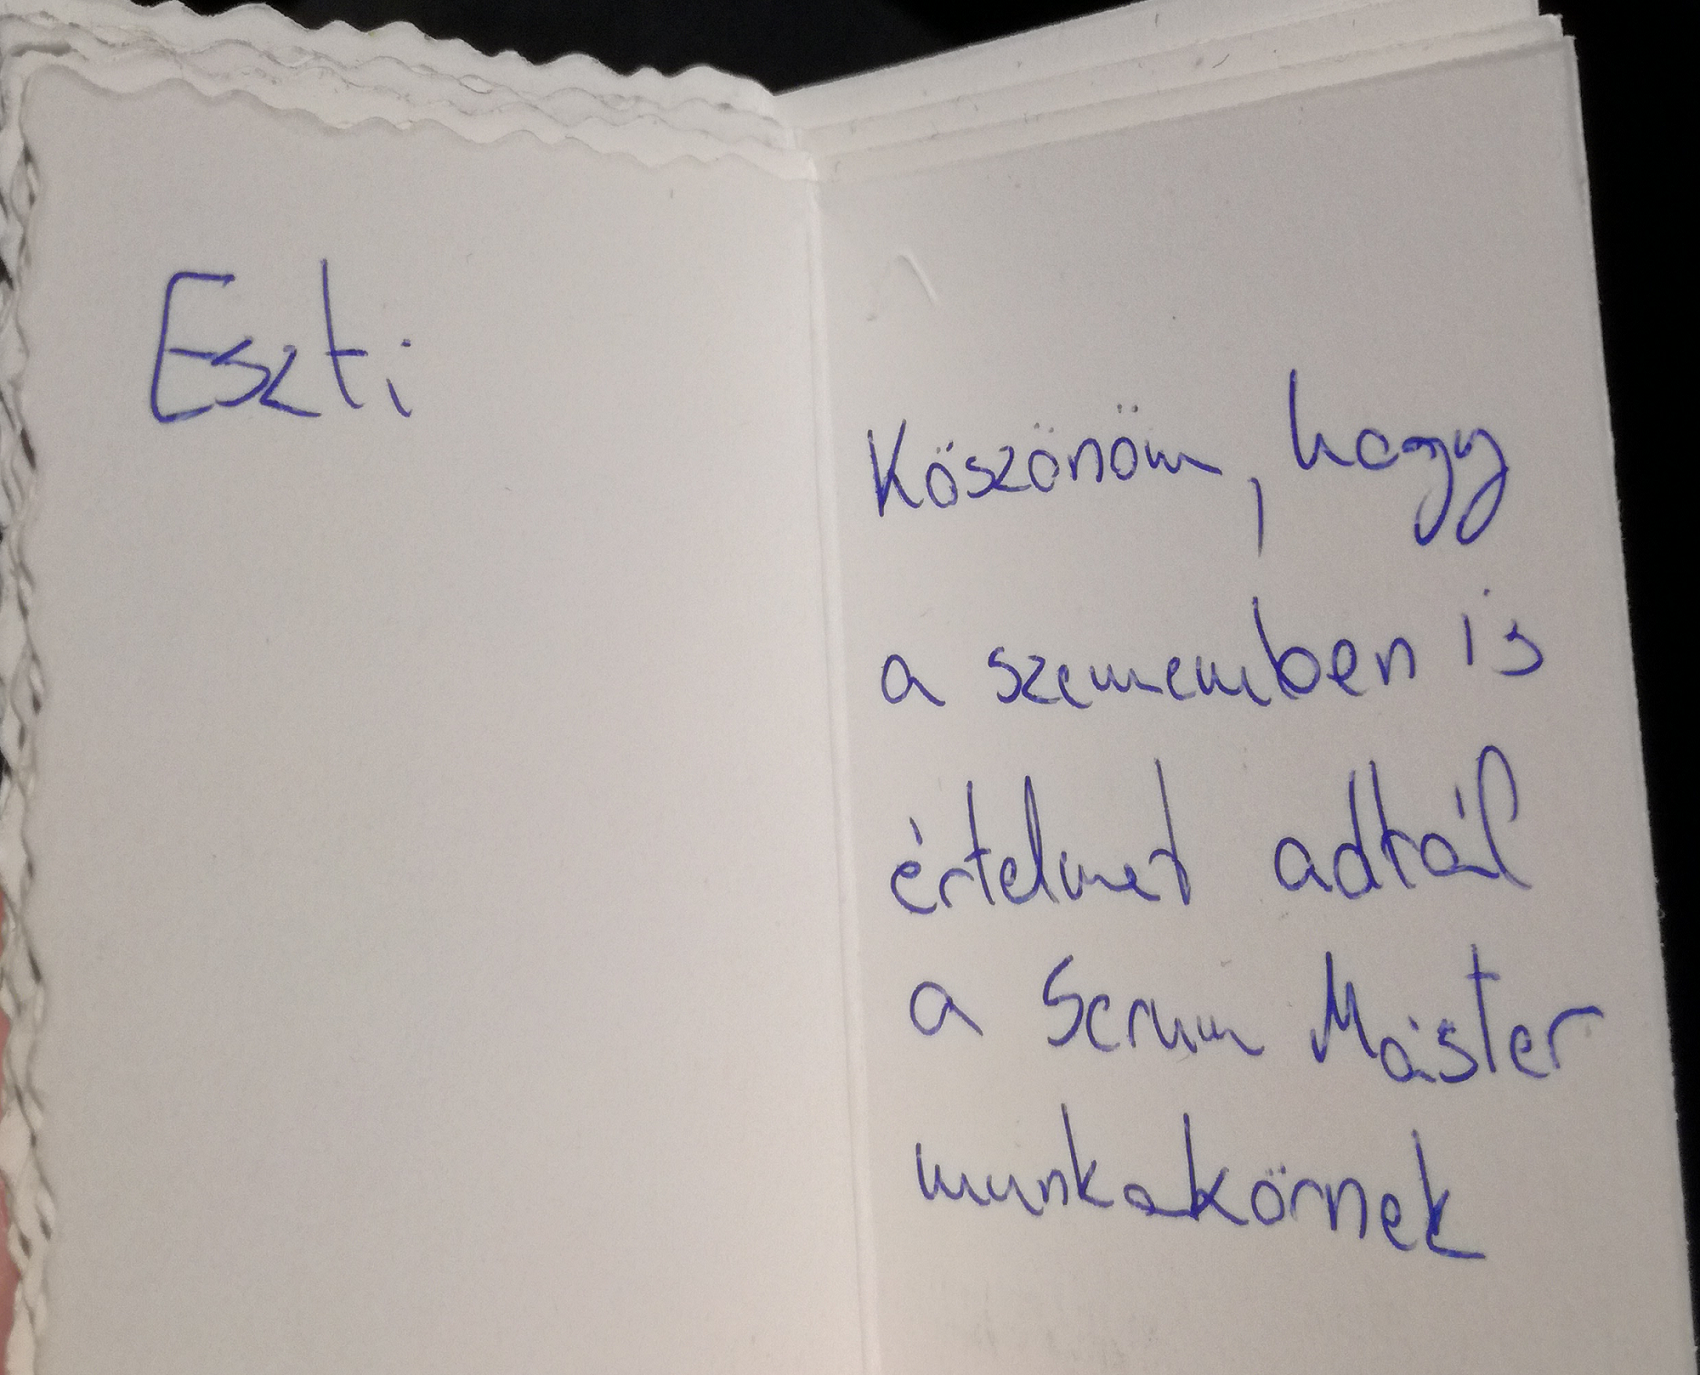 Eszti
Köszönöm, hogy
a szememben is
értelmet adtál
a Scrum Máster
munkakörnek